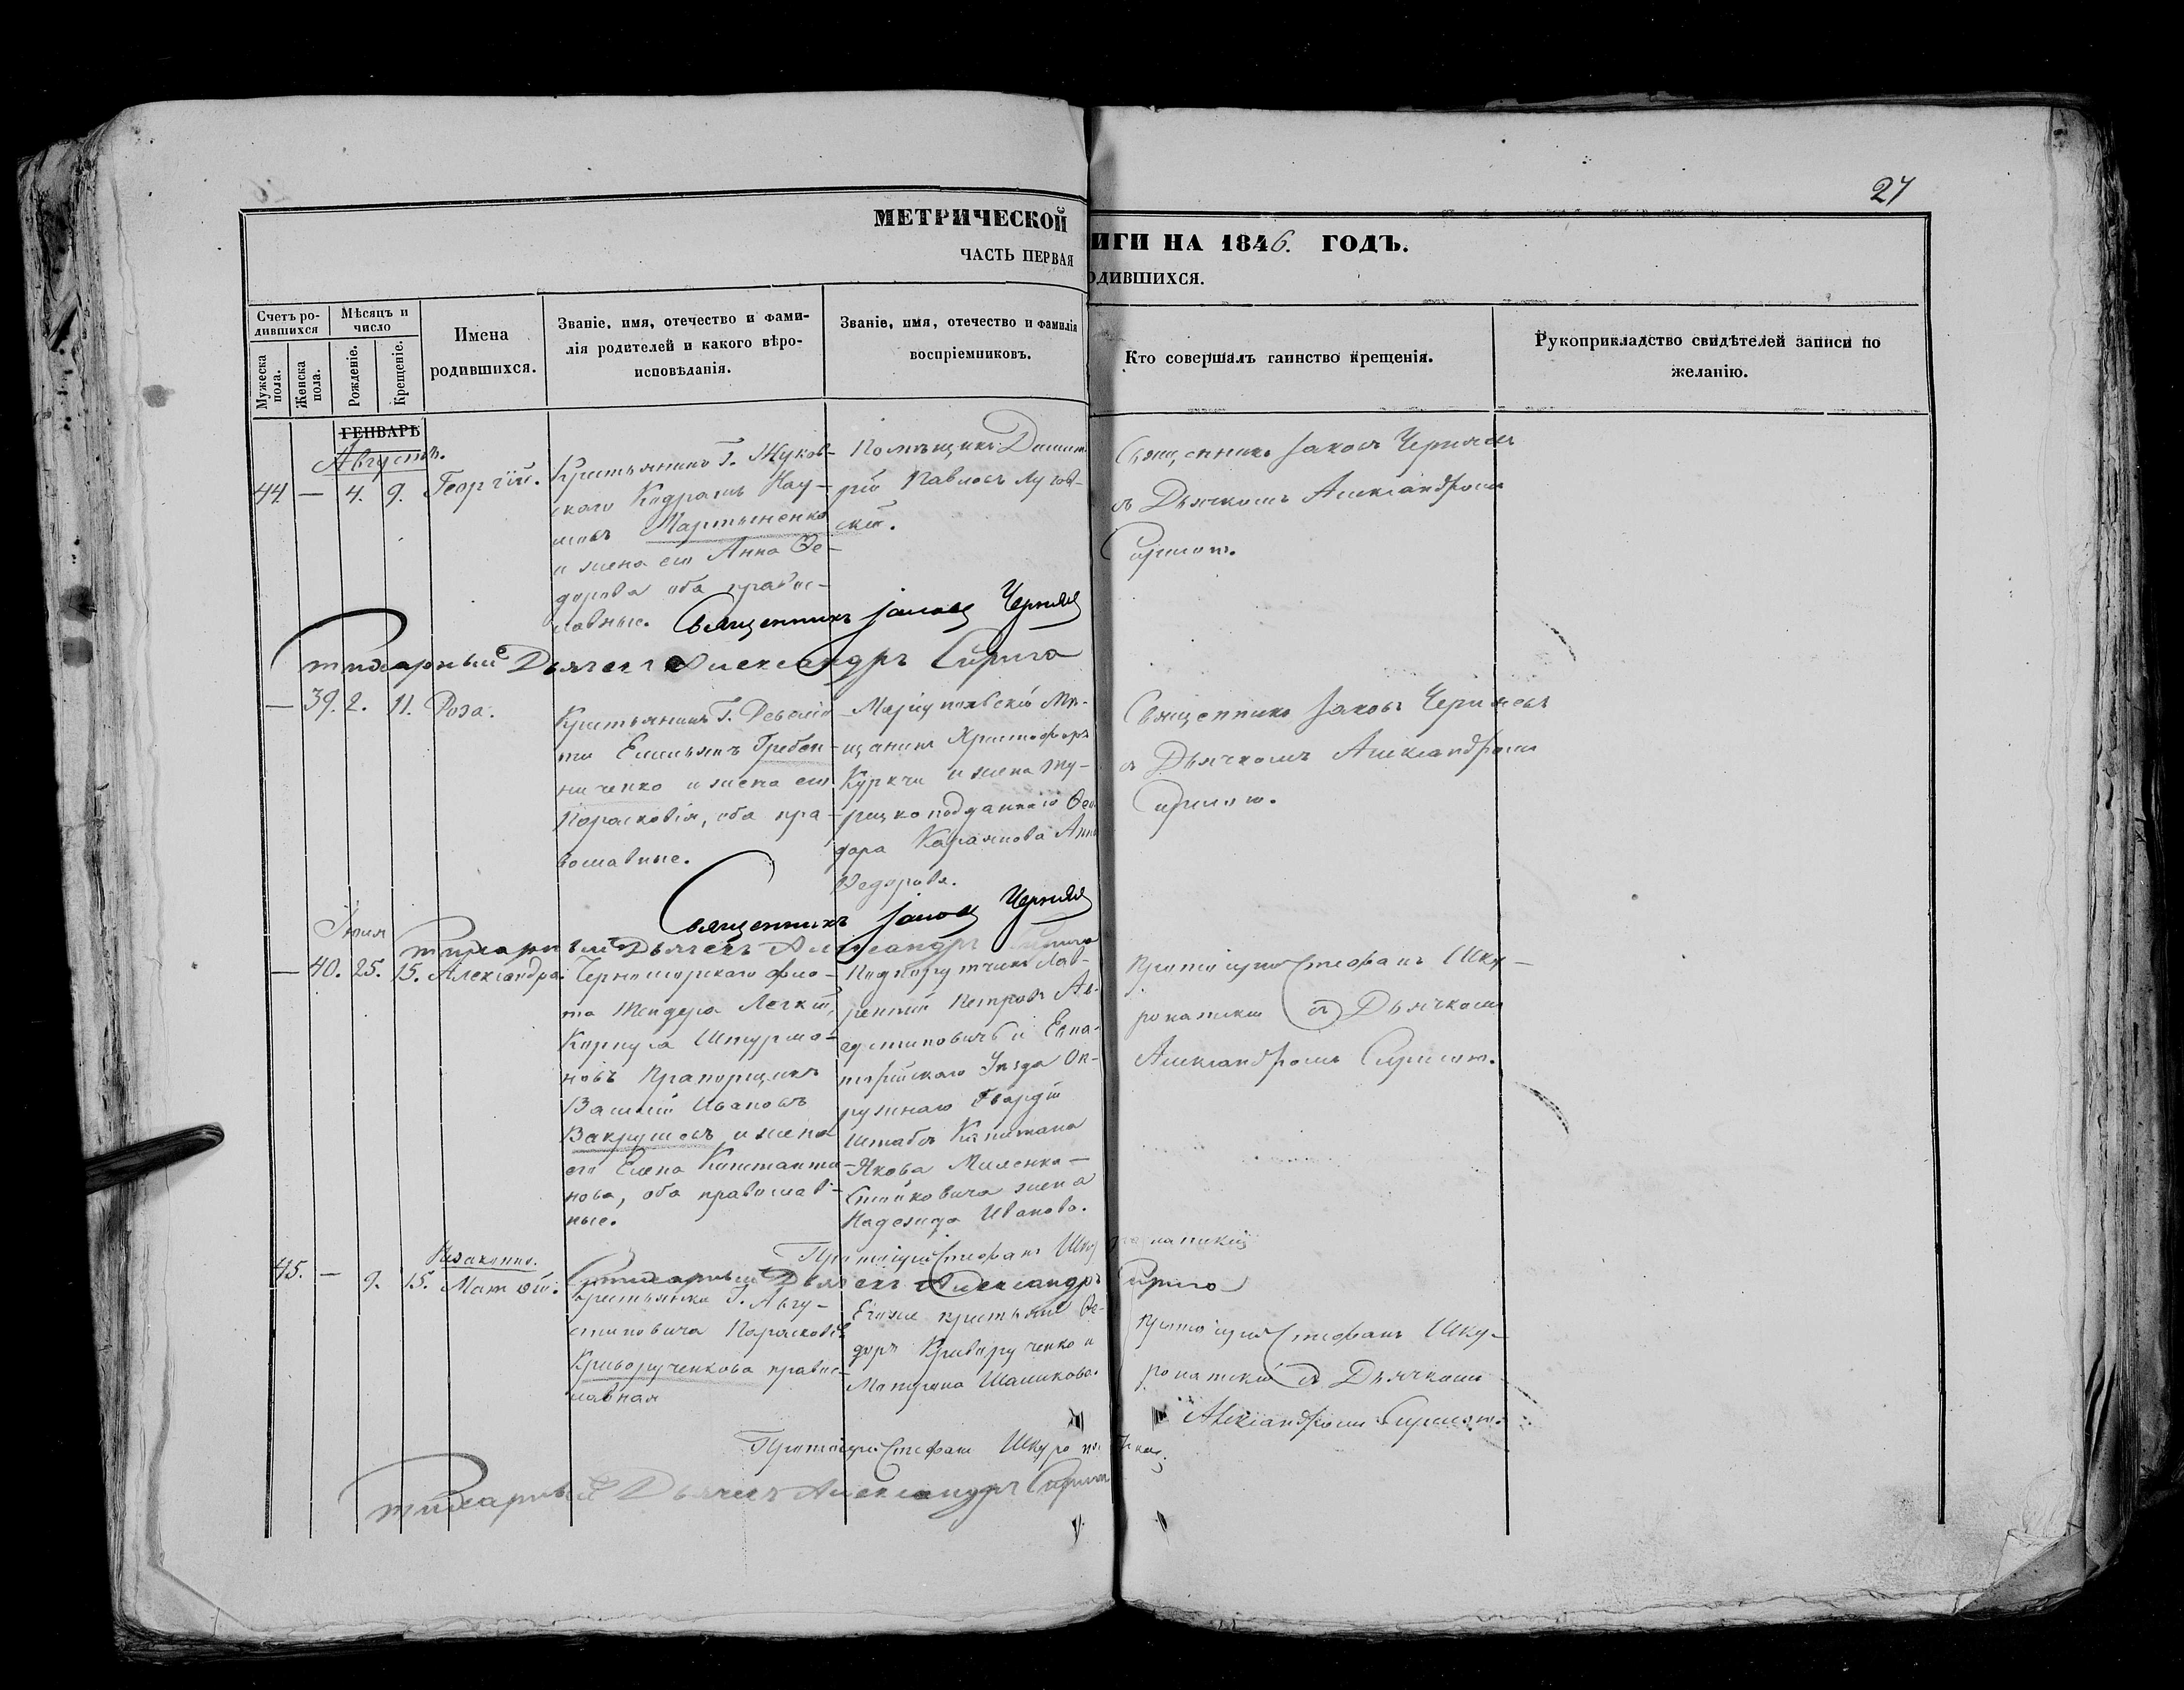 27
МЕТРИЧЕСКОЙ
ИГИ НА 1846. ГОДЪ.
ЧАСТЬ ПЕРВАЯ
ОДИВШИХСЯ.
Счетъ ро-
дившихся
Мѣсяцъ и
число
Мужеска
пола.
Женска
пола.
Рожденіе.
Крещеніе.
Имена
родившихся.
Званіе, имя, отечество и фами-
лія родителей и какого вѣро-
исповѣданія.
Званіе, имя, отечество и фамилія
воспріемниковъ.
Кто совершалъ таинство крещенія.
Рукоприкладство свидѣтелей записи по
желанію.
ГЕНВАРЬ
Августъ.
44 — 4. 9. Георгій.
Крестьянинъ Г. Жуков-
скаго Кодратъ Нау-
мовъ Мартыненко
и жена его Анна Ѳе-
дорова оба правос-
лавные.
Помѣщикъ Димит
рій Павловъ Жуков-
скій.
Священникъ Іаковъ Чернявъ
съ Дьячкомъ Александромъ
Сиригою.
Священникъ Іаковъ Чернявъ
Стихарный Дьячекъ Александръ Сирига
— 39. 2. 11. Роза.
Крестьянинъ Г.
ти Емельянъ Гребен-
ниченко и жена его
Парасковія, оба пра-
вославные.
Маріупольскій Мѣ-
щанинъ Христофоръ
Куркчи и жена Ту-
рецкоподданнаго Ѳео
дора Караянова Анна
Ѳедорова.
Священникъ Іаковъ Чернявъ
съ Дьячкомъ Александромъ
Сиригою.
Священникъ Іаковъ Чернявъ
Стихарный Дьячекъ Александръ Сирига
Іюля
— 40. 25. 15. Александра.
Черноморскаго фло-
та Тендера Легкій,
Корпуса Штурма-
новъ Прапорщикъ
Василій Ивановъ
Вакрушевъ и жена
его Елена Константи-
нова, оба православ-
ные.
Подпоручикъ Лав-
рентій Петровъ Ав-
густиновичъ и Евпа-
торійскаго Уѣзда Ок-
ружнаго Гвардіи
Штабсъ Капитана
Якова Миленко-
Стойковича жена
Надежда Иванова.
Протоіерей Стефанъ Шку-
ропатскій съ Дьячкомъ
Александромъ Сиригою.
Протоіерей Стефанъ Шкуропатскій
Стихарный Дьячекъ Александръ Сирига
Незаконно.
45. — 9. 15. Матѳей.
Крестьянка Г. Авгу-
стиновича Парасковія
Криворученкова правос-
лавная
Егоже крестьяне Ѳе-
доръ Криворученко и
Матрона Шаликова.
Протоіерей Стефанъ Шку-
ропатскій съ Дьячкомъ
Александромъ Сиригою.
Протоіерей Стефанъ Шкуропатскій
Стихарный Дьячекъ Александръ Сирига